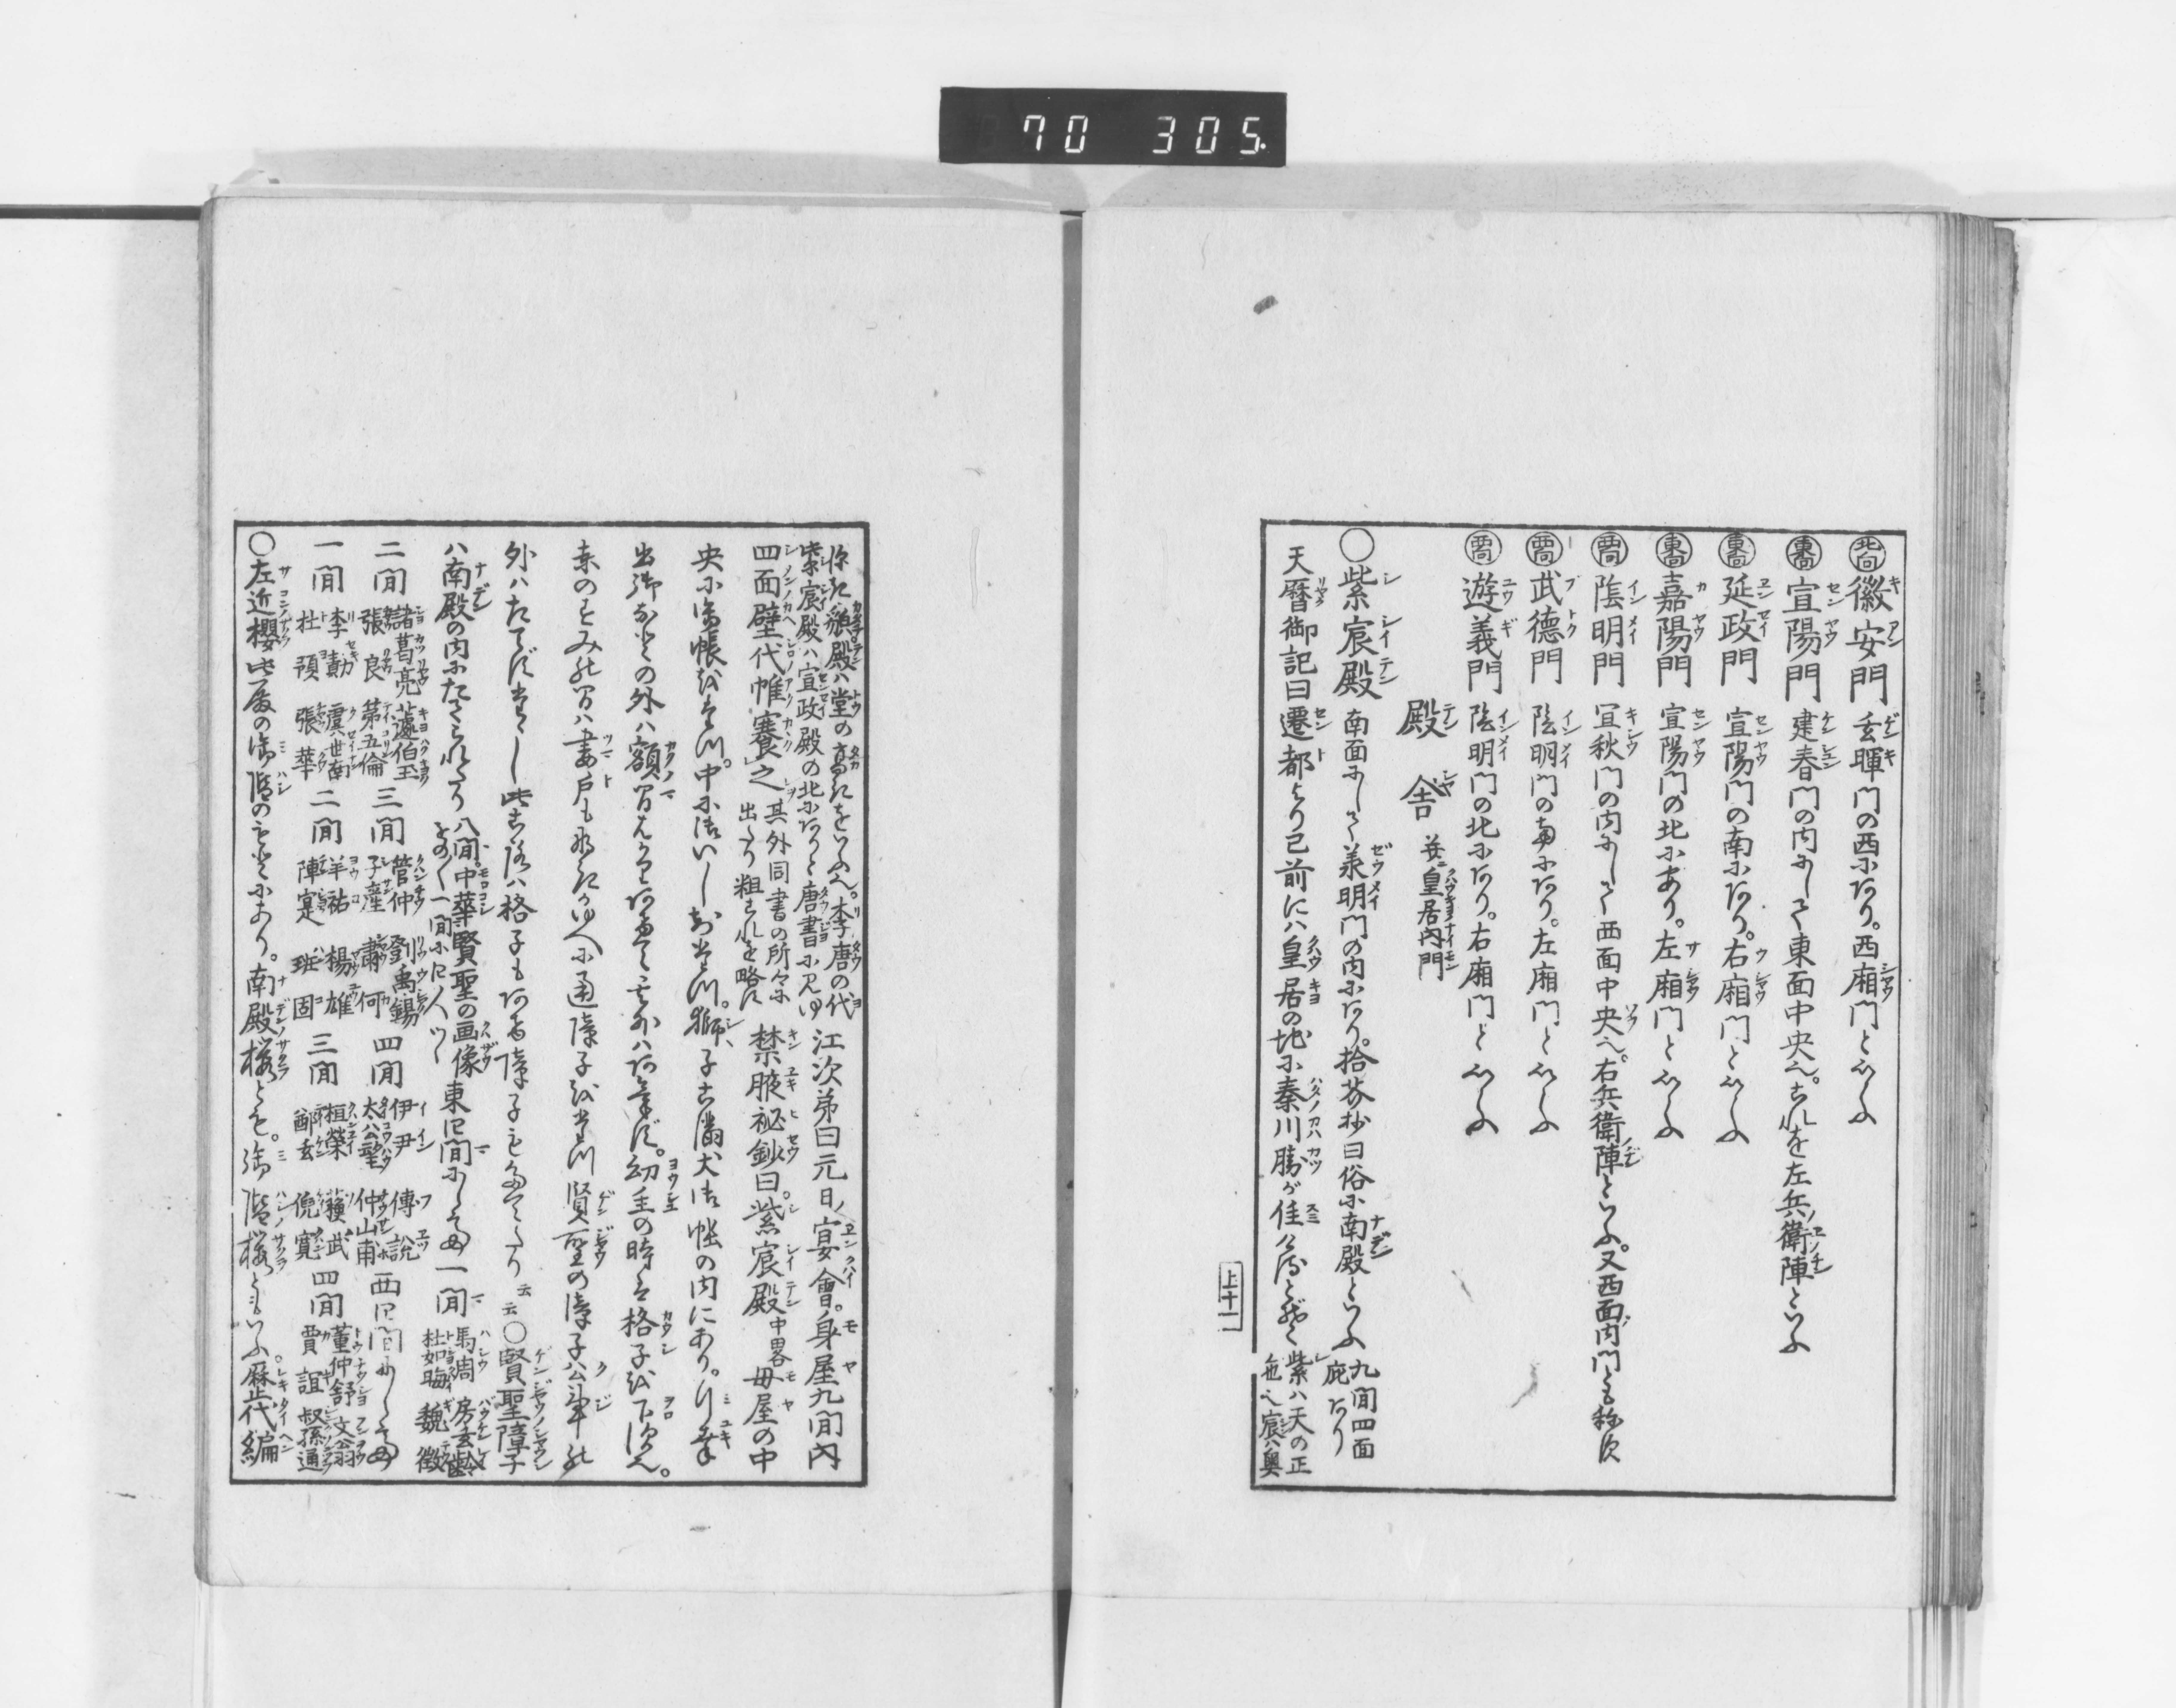 70 305.
北向 徽安門 玄暉門の西にあり。西廂門といふ
東向 宣陽門 建春門の内にして東面中央也。これを左兵衛陣といふ
東向 延政門 宣陽門の南にあり。右廂門といふ
東向 嘉陽門 宣陽門の北にあり。左廂門といふ
西向 陰明門 宜秋門の内にして西面中央也。右兵衛陣といふ。又西面内門とも称す
西向 武徳門 陰明門の南にあり。左廂門といふ
西向 遊義門 陰明門の北にあり。右廂門といふ
殿舎 並ニ皇居内門
〇紫宸殿 南面にして承明門の内にあり。拾芥抄曰俗に南殿といふ 九間四面庇あり
天暦御記曰遷都より已前には皇居の地に秦川勝が住 紫ハ天の正 也宸ハ奥
上十一
殿ハ堂の高きをいふ也。李唐の代
紫宸殿ハ宣政殿の北にありと唐書に見ゆ 江次第曰元日ノ宴會。身屋九間内
四面壁代帷褰之 其外同書の所々に出たり粗これを略す 禁腋祕鈔曰。紫宸殿中畧母屋の中
央に御帳をたつ。中に御いしをたつ。獅子こま犬御帳の内にあり。行幸
出御などの外ハ額間 幼主の時は格子を下す也。
東のすみの間ハ妻戸もなきゆへに通障子をたつ賢聖の障子公事の
外ハたてず 格子も 障子も 云云〇賢聖障子
ハ南殿の内にたてられたり 八間。中華賢聖の画像 東四間にしては一間 馬周 房玄齢 杜如晦 魏徴
二間 諸葛亮 蘧伯玉 張良 第五倫 三間 管仲 劉禹錫 子産 蕭何 四間 伊尹 傳説 太公望 仲山甫 西四間にしては
一間 李勣 虞世南 杜預 張華 二間 羊祜 楊雄 陳寔 班固 三間 桓榮 蘇武 鄭玄 倪寛 四間 董仲舒 文翁 賈誼 叔孫通
〇左近櫻 此殿の御階のもとにあり。南殿桜とも。御階桜ともいふ。歴代編